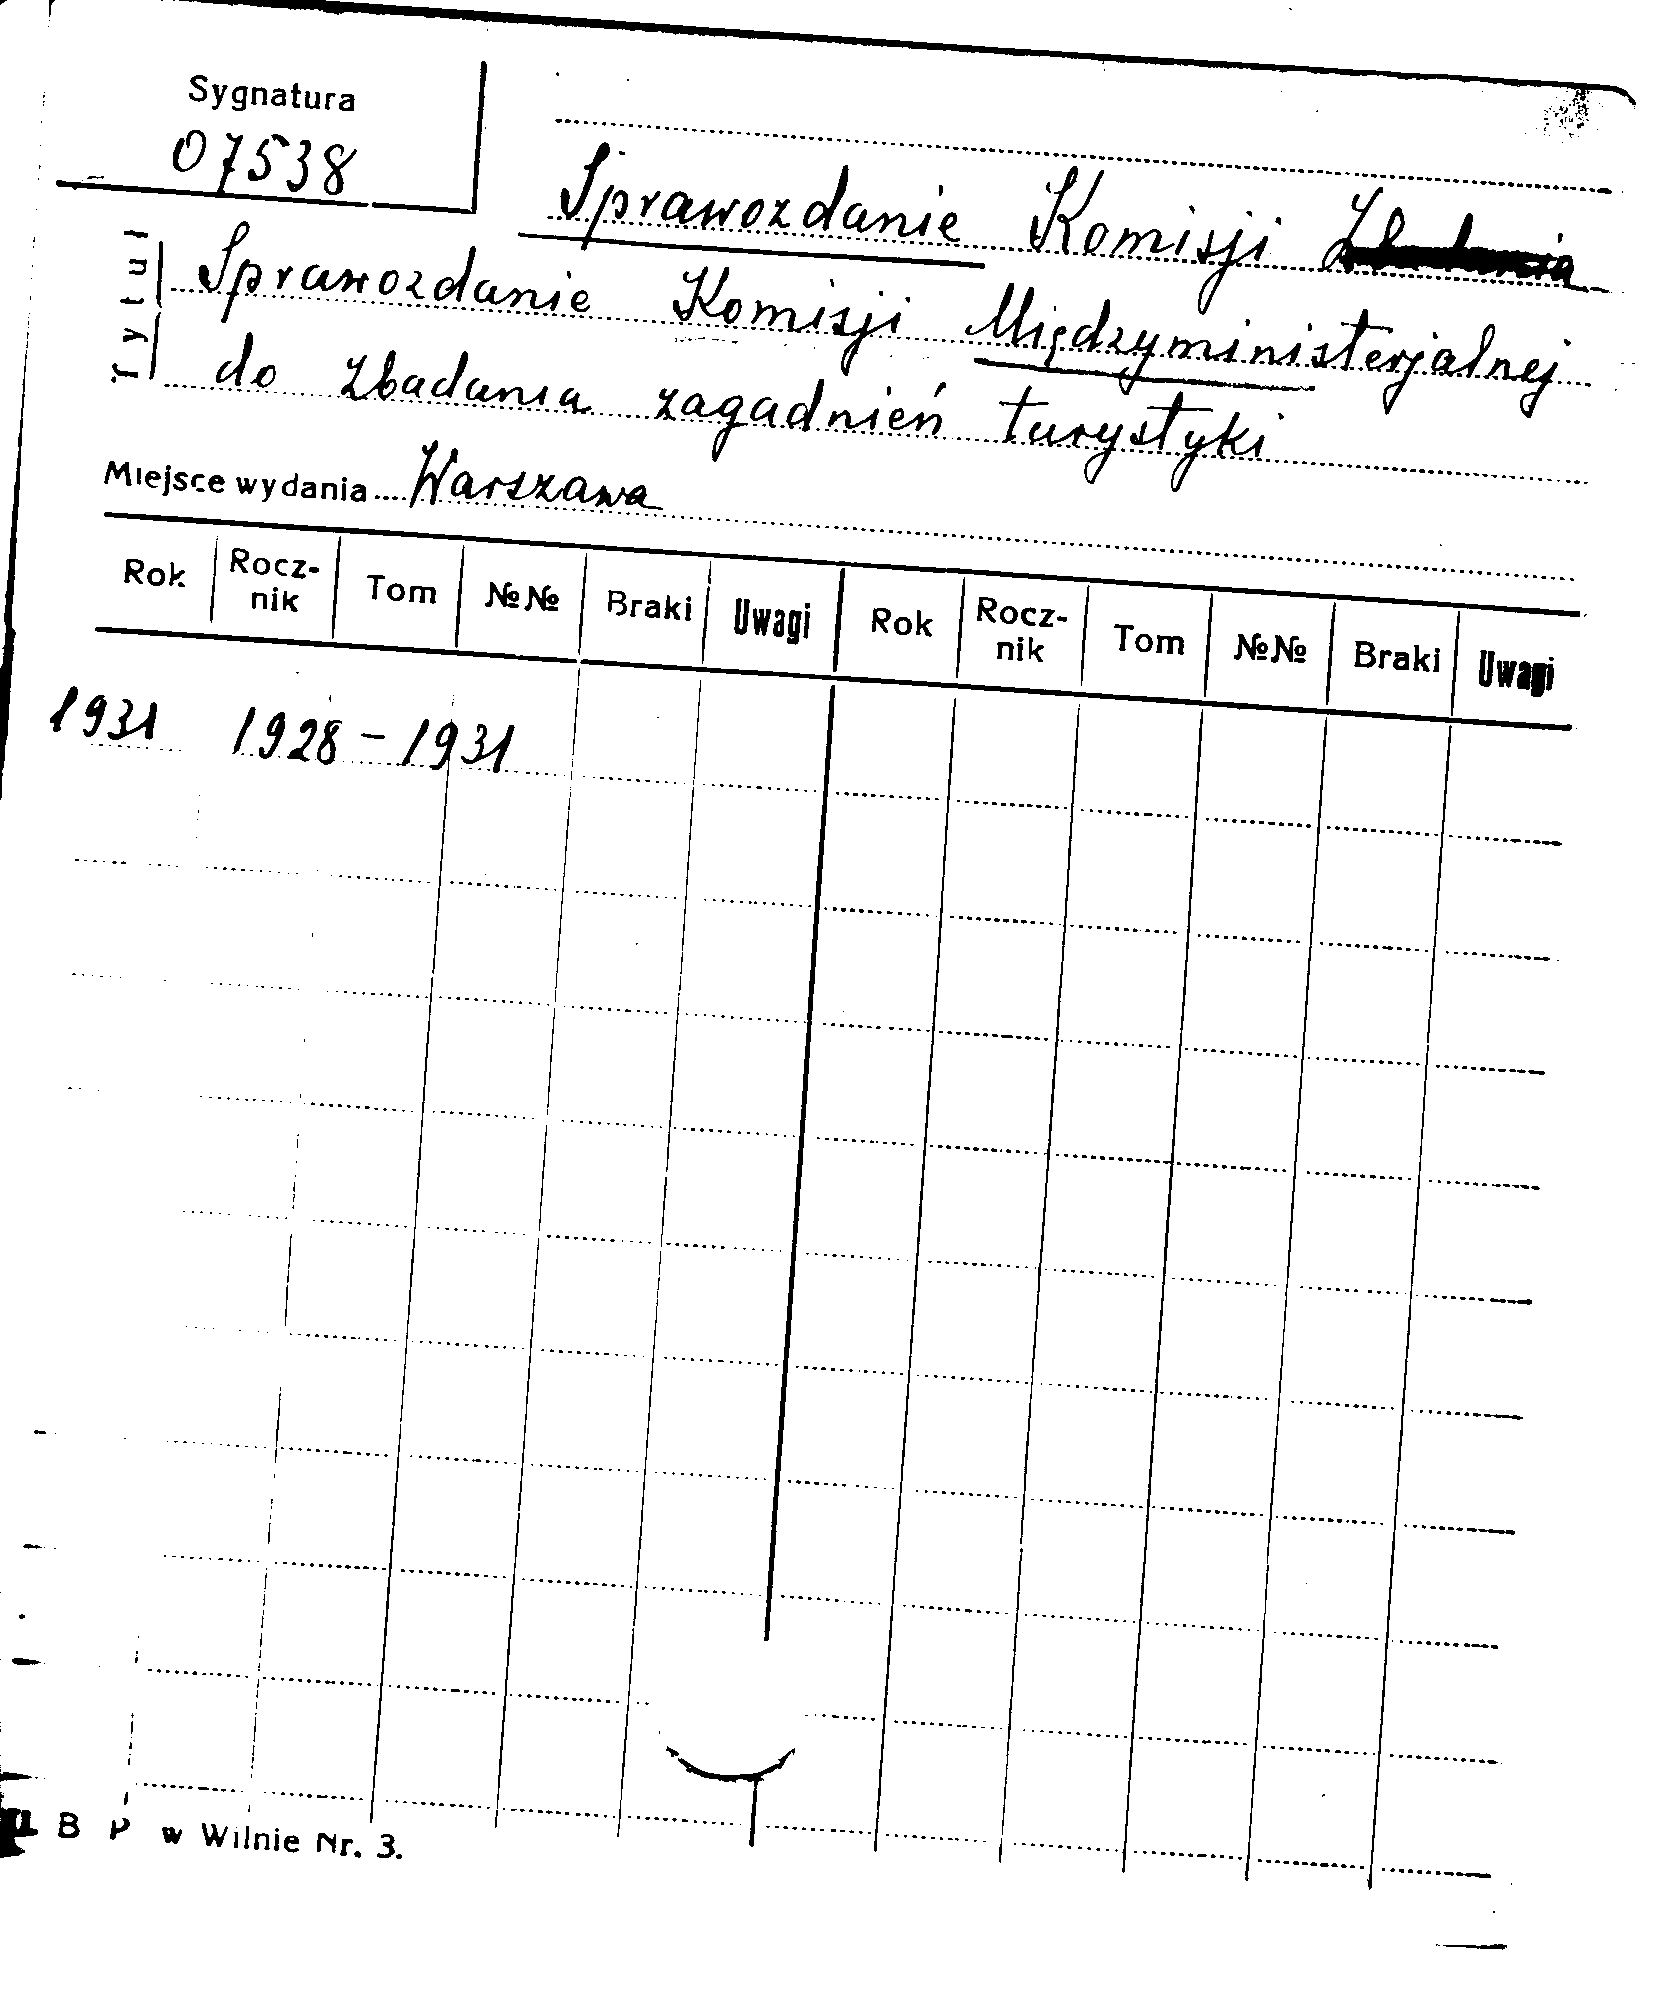 Sygnatura
07538
Sprawozdanie Komisji
Tytuł
Sprawozdanie Komisji Międzyministerjalnej
do zbadania zagadnień turystyki
Miejsce wydania Warszawa
Rok Rocz-nik Tom №№ Braki Uwagi Rok Rocz-nik Tom №№ Braki Uwagi
1931 1928 - 1931
B P w Wilnie Nr. 3.